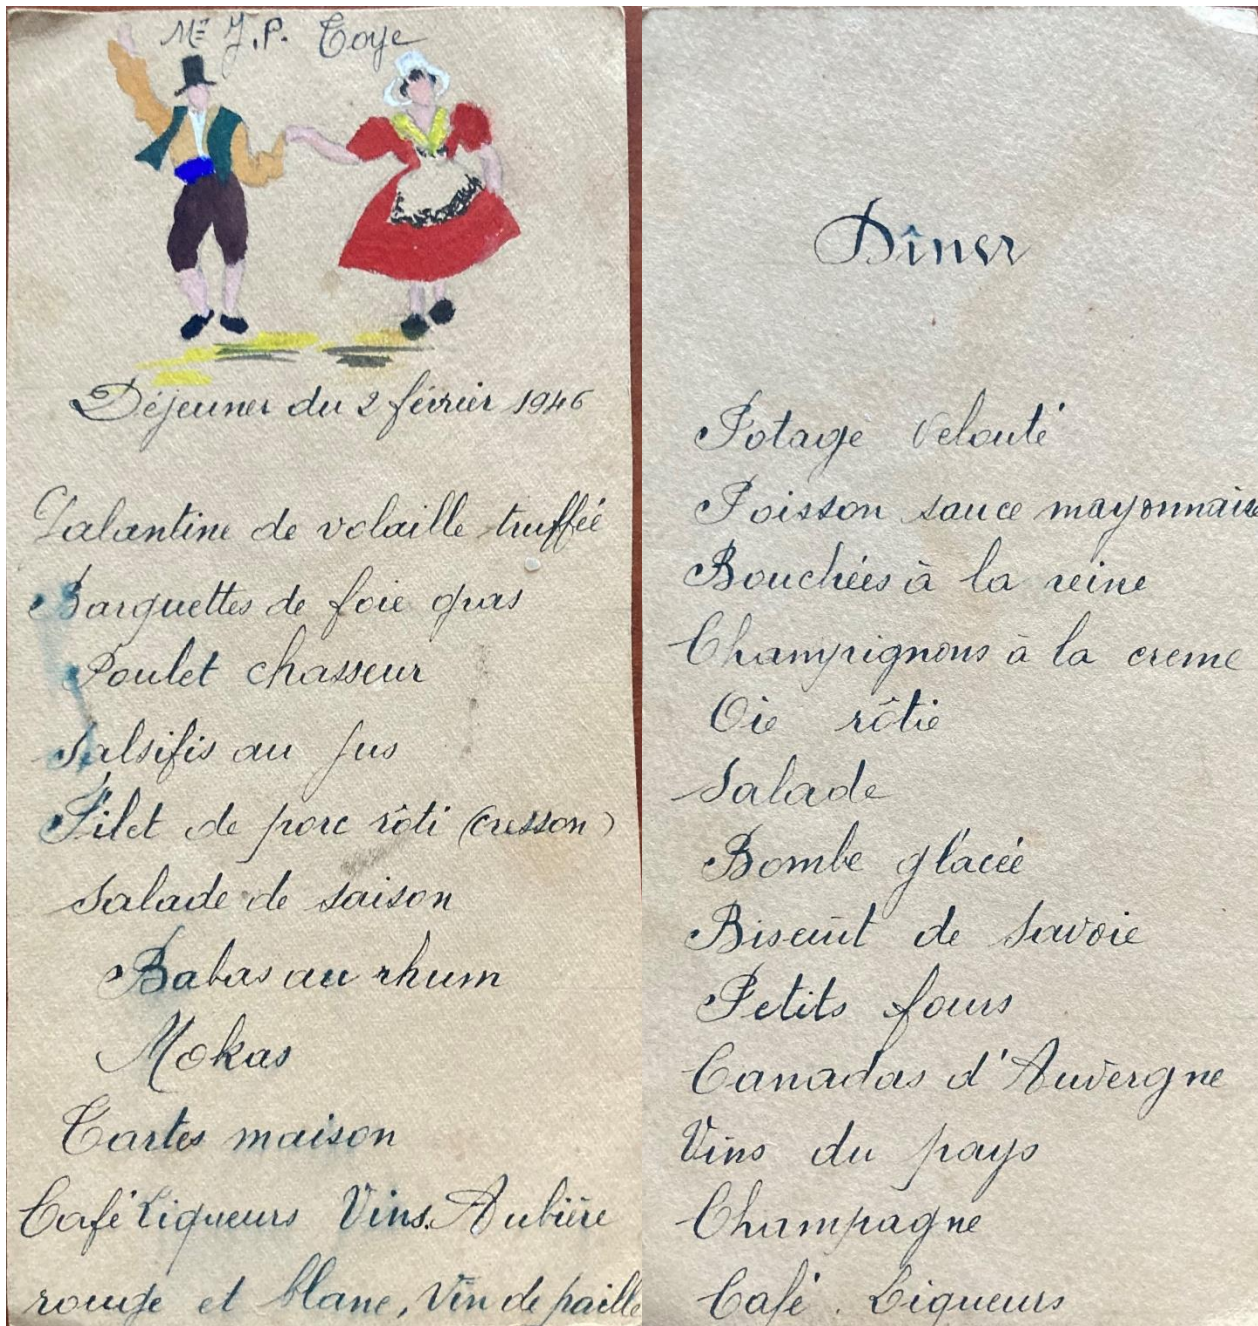 Mr J.P. Toye
Déjeuner du 2 février 1946
Galantine de volaille truffée
Barquettes de foie gras
Poulet chasseur
Salsifis au jus
Filet de porc rôti (cresson)
Salade de saison
Babas au rhum
Mokas
Tartes maison
Café Liqueurs Vins. Aubière
rouge et blanc, Vin de paille
Dîner
Potage velouté
Poisson sauce mayonnaise
Bouchées à la reine
Champignons à la creme
Oie rôtie
Salade
Bombe glacée
Biscuit de Savoie
Petits fours
Canadas d'Auvergne
Vins du pays
Champagne
Café. Liqueurs